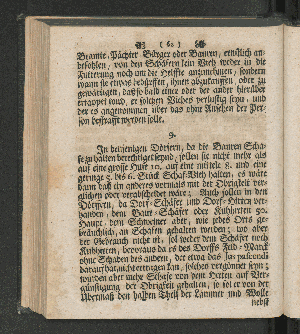 ( 62 )
Beamte, Pächter, Bürger oder Bauren, ernstlich an-
befohlen, von den Schäfern kein Vieh weder in die
Fütterung noch um die Helffte anzunehmen, sondern
wann sie etwas bedürffen, ihnen abzukauffen, oder zu
gewärtigen, daß so bald einer oder der ander hierüber
ertappet wird, er solchen Viehes verlustig seyn, und
der es angenommen über das ohne Ansehen der Per-
son bestrafft werden solle.
9.
In denjenigen Dörfern, da die Bauren Scha-
fe zu halten berechtiget seynd, sollen sie nicht mehr als
auf eine grosse Hufe 10. auf eine mittele 8. und eine
geringe 5. bis 6. Stück Schaf-Vieh halten, es wäre
dann daß ein anderes vermittelst mit der Obrigkeit ver-
glichen oder verabscheidet wäre; Auch sollen in den
Dörffern, da Dorf-Schäfer und Dorf-Hirten ver-
handen, dem Bauer-Schäfer oder Kuhhirten 50.
Haupt, dem Schweiner aber, wie jedes Orts ge-
bräuchlich, an Schafen gehalten werden; wo aber
der Gebrauch nicht ist, soll weder dem Schäfer noch
Kuhhirten, bevoraus da es des Dorffs Feld-Marck
ohne Schaden des andern, der etwa das jus pascendi
darauf hat, nicht ertragen kan, solches vergönnet seyn;
wurden aber mehr Schafe von dem Herten auf Ver-
günstigung der Obrigkeit gehalten, so sol er von der
Übermaß den halben Theil der Lämmer und Wolle
nebst